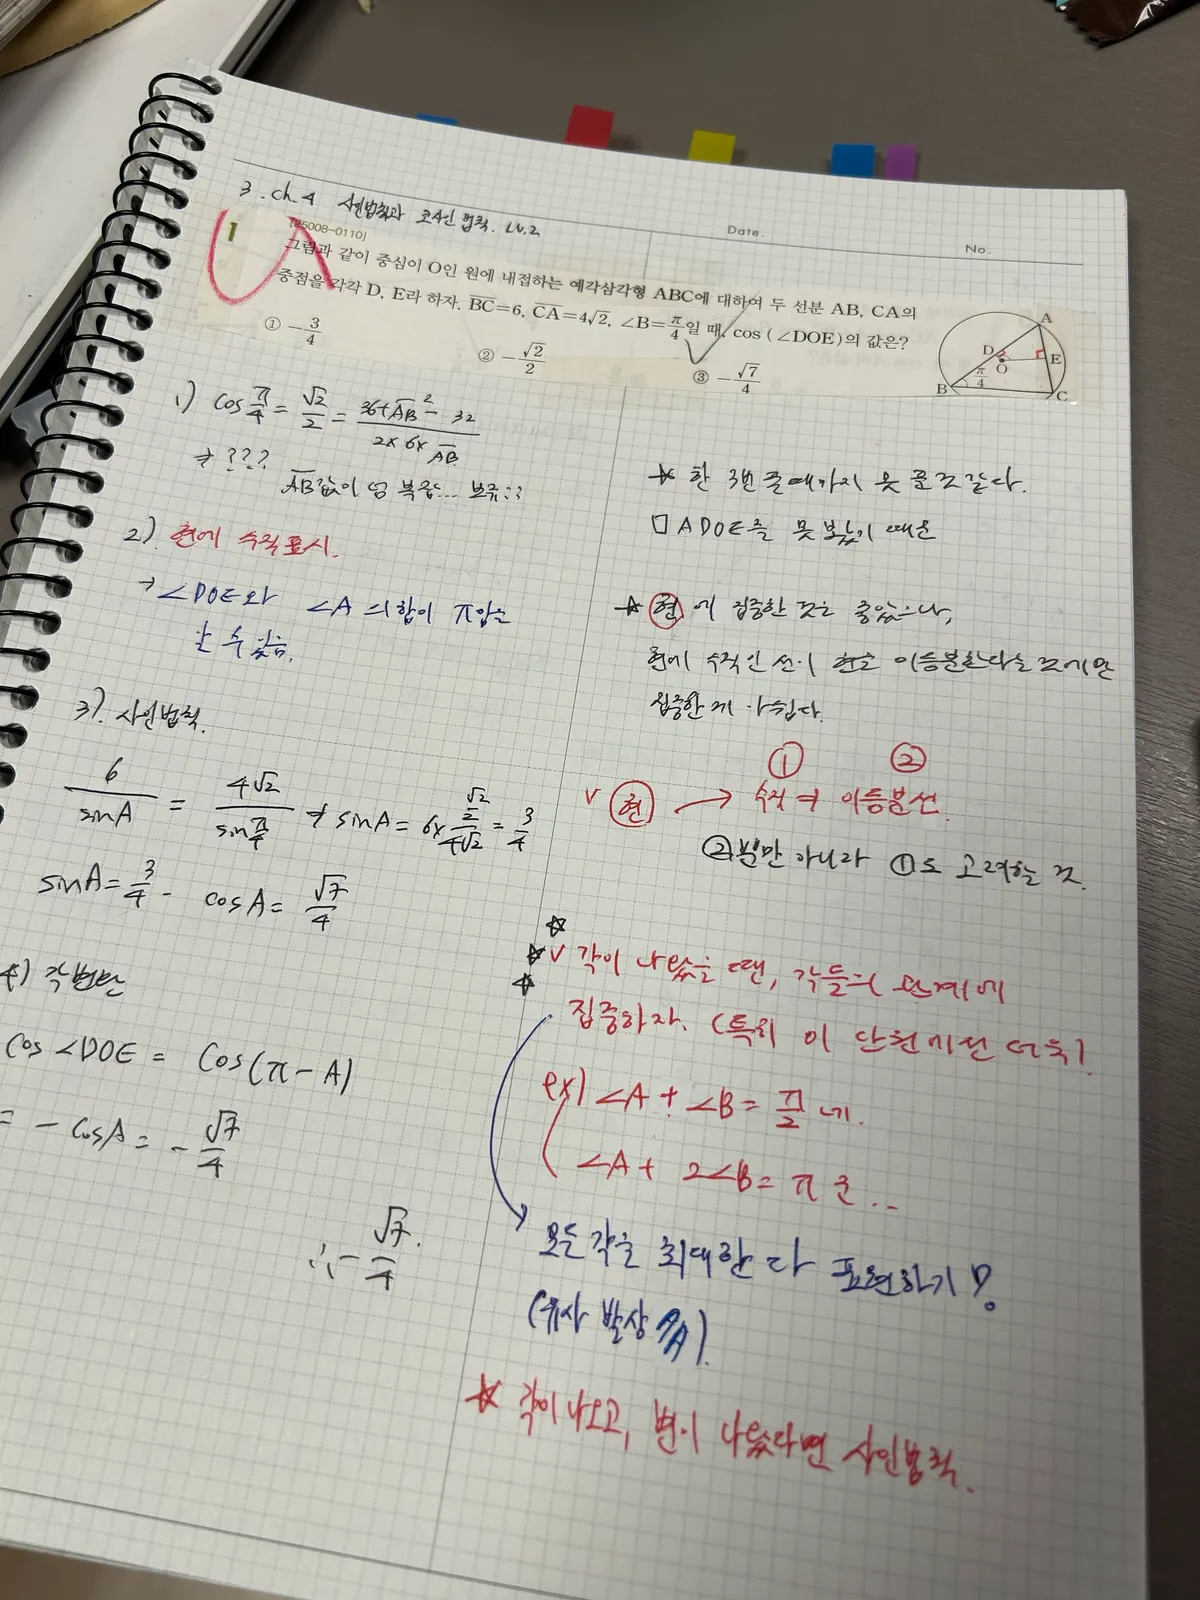 3. ch.4 사인법칙과 코사인 법칙. Lv.2
Date.
No.
1
[25008-0110]
그림과 같이 중심이 O인 원에 내접하는 예각삼각형 ABC에 대하여 두 선분 AB, CA의
중점을 각각 D, E라 하자. BC=6, CA=4√2, ∠B=π/4일 때, cos (∠DOE)의 값은?
① -3/4
② -√2/2
③ -√7/4
A
D
E
O
π/4
B
C
1) cos π/4 = √2/2 = (36+AB² - 32)/(2×6×AB)
→ ???
AB값이 넘 복잡... 보류::
2). 현에 수직표시.
→ ∠DOE와 ∠A의 합이 π임을
알 수 있음.
3). 사인법칙.
6/sinA = 4√2/sin π/4 → sinA = 6×(√2/2)/4√2 = 3/4
sinA = 3/4. cosA = √7/4
4) 각 변환
cos∠DOE = cos(π-A)
= -cosA = -√7/4
∴ -√7/4.
★ 한 3번 풀때까지 못 푼것 같다.
□ADOE를 못 봤기 때문
★ 현에 집중한 것은 좋았으나,
현에 수직인 선이 현을 이등분한다는 것에만
집중한 게 아쉽다.
① ②
v 현 → 수직 → 이등분선.
②뿐만 아니라 ①도 고려할 것.
☆
★ v 각이 나왔을 땐, 각들의 관계에
★ 집중하자. (특히 이 단원에선 더욱).
ex) ∠A + ∠B = π/2 네.
∠A + 2∠B = π 군...
모든 각을 최대한 다 표현하기!
(유사 발상 ).
★ 각이 나오고, 변이 나왔다면 사인법칙.